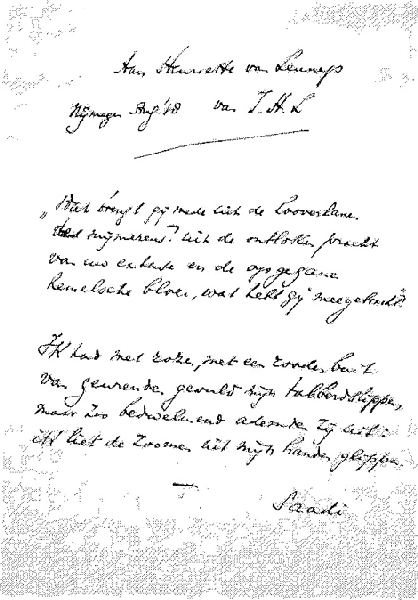 Aan Henriette van Lennep
Nijmegen Aug '18 van J. H. L
„Wat brengt gij mede uit de
uit de ontloken pracht
van uw extase en de opgegane
hemelsche bloei, wat hebt gij meegebracht?"
Ik had met roze, met een
van geurende gevuld mijn tabberdslippe,
maar zoo bedwelmend ademde zij uit:
ik liet de zoomen uit mijn handen glippen.
Saadi